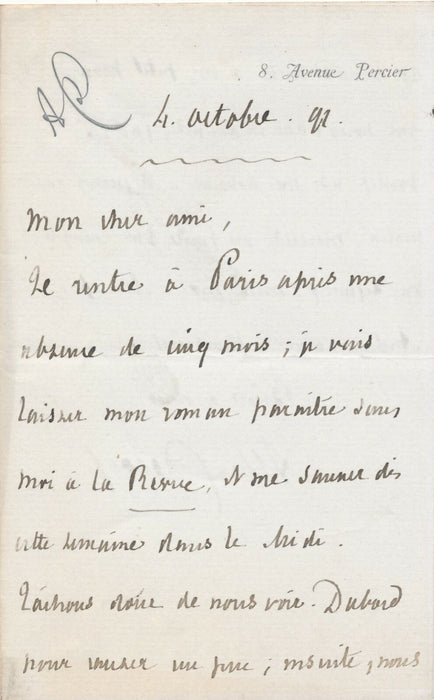 8. Avenue Percier
4. octobre. 91.
Mon cher ami,
Je rentre à Paris après une
absence de cinq mois ; je vais
laisser mon roman paraître sans
moi à la Revue, & me sauver dès
cette semaine dans le Midi.
Tâchons donc de nous voir. D'abord
pour causer un peu ; ensuite, nous